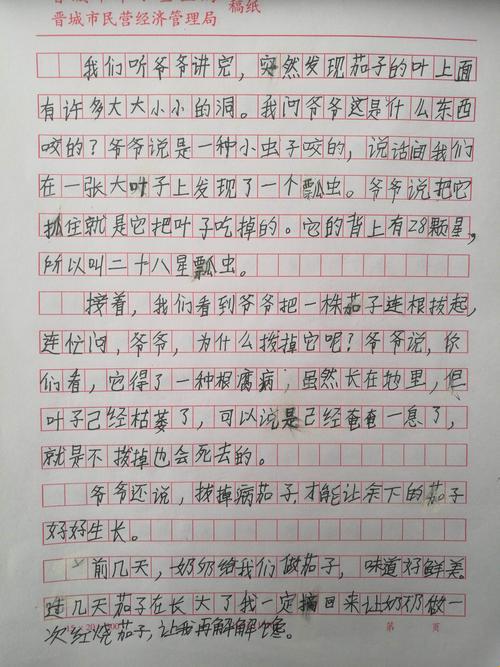 稿纸
晋城市民营经济管理局
我们听爷爷讲完，突然发现茄子的叶上面
有许多大大小小的洞。我问爷爷这是什么东西
咬的？爷爷说是一种小虫子咬的，说话间我们
在一张大叶子上发现了一个瓢虫。爷爷说把它
抓住就是它把叶子吃掉的。它的背上有28颗星，
所以叫二十八星瓢虫。
接着，我们看到爷爷把一株茄子连根拔起，
连忙问，爷爷，为什么拨掉它呢？爷爷说，你
们看，它得了一种根腐病，虽然长在地里，但
叶子己经枯萎了，可以说是己经奄奄一息了，
就是不拔掉也会死去的。
爷爷还说，拔掉病茄子，才能让余下的茄子
好好生长。
前几天，奶奶给我们做茄子，味道好鲜美。
过几天茄子在长大了我一定摘回来让奶奶做一
次红烧茄子，让我再解解馋。
第 页